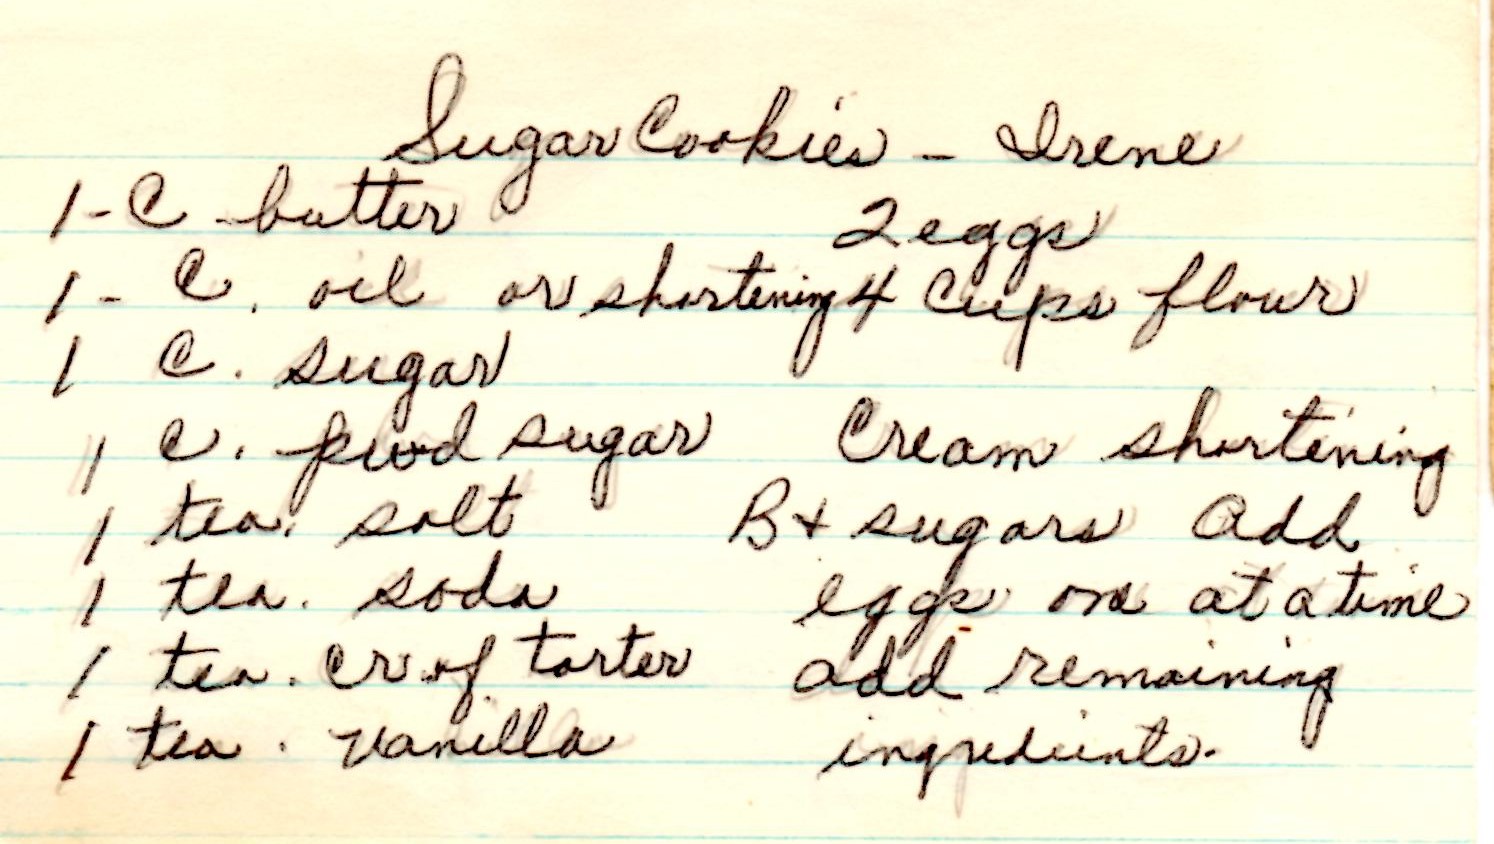 Sugar Cookies - Irene
1 - C butter
1 - C. oil or shortening
1 C. sugar
1 C. pwd sugar
1 tea. salt
1 tea. soda
1 tea. cr of tarter
1 tea. vanilla
2 eggs
4 Cups flour
Cream shortening
B + sugars Add
eggs one at a time
add remaining
ingredients.